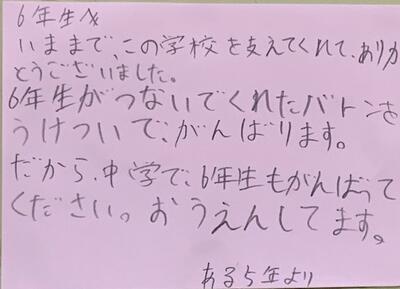 6年生へ
いままで、この学校を支えてくれて、ありが
とうございました。
6年生がつないでくれたバトンを
うけついで、がんばります。
だから、中学で、6年生もがんばって
ください。おうえんしてます。
ある5年より